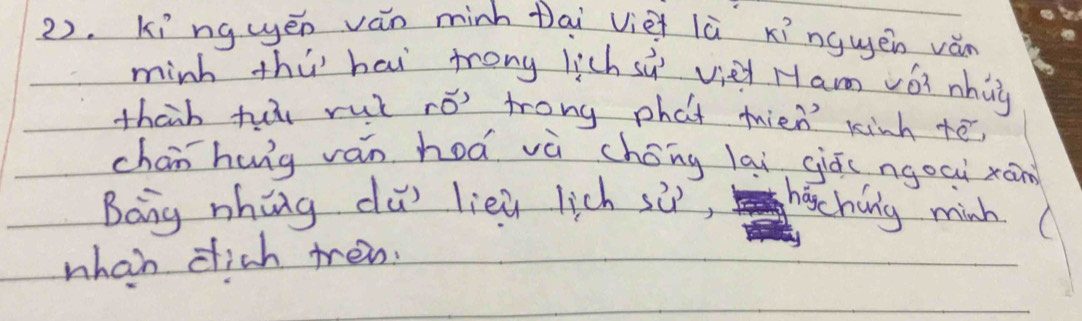 22. Kỉ nguyên văn minh Đại Việt là kỉ nguyên văn
minh thứ hai trong lịch sử Việt Nam với những
thành tựu rực rỡ trong phát triển kinh tế,
chấn hưng văn hoá và chống lại giặc ngoại xâm
Bằng những dữ liệu lịch sử, hãy chứng minh
nhận định trên.